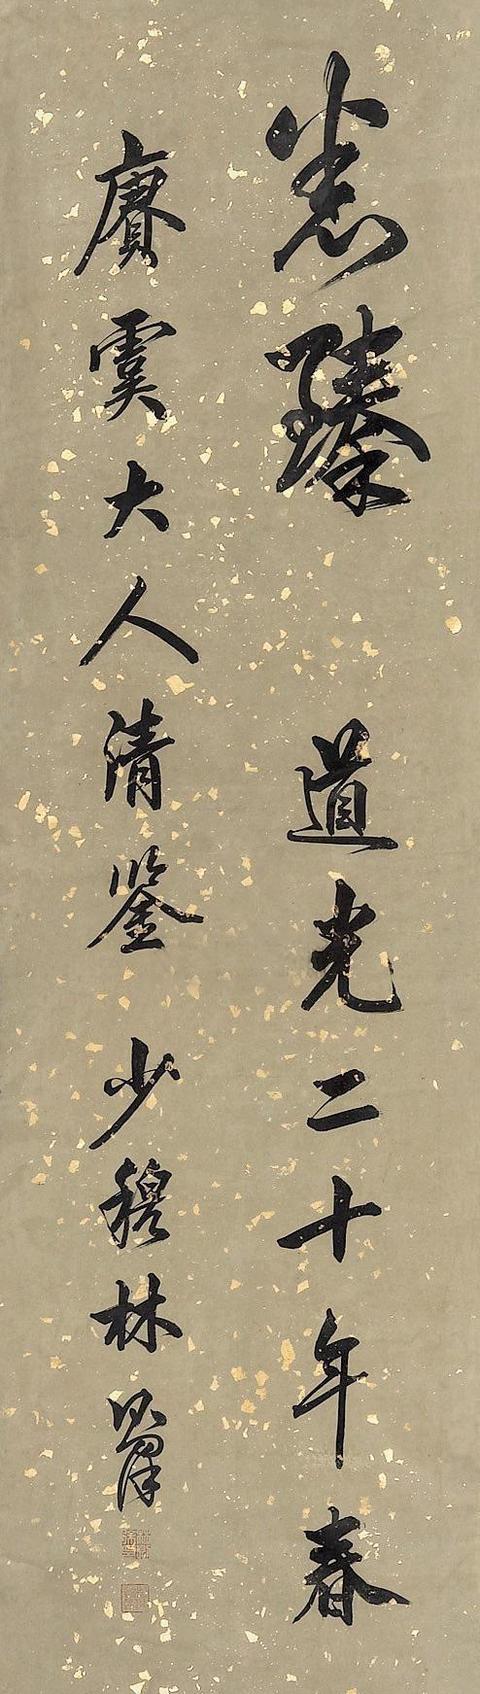 悉臻 道光二十年春
賡虞大人清鑒 少穆林則徐